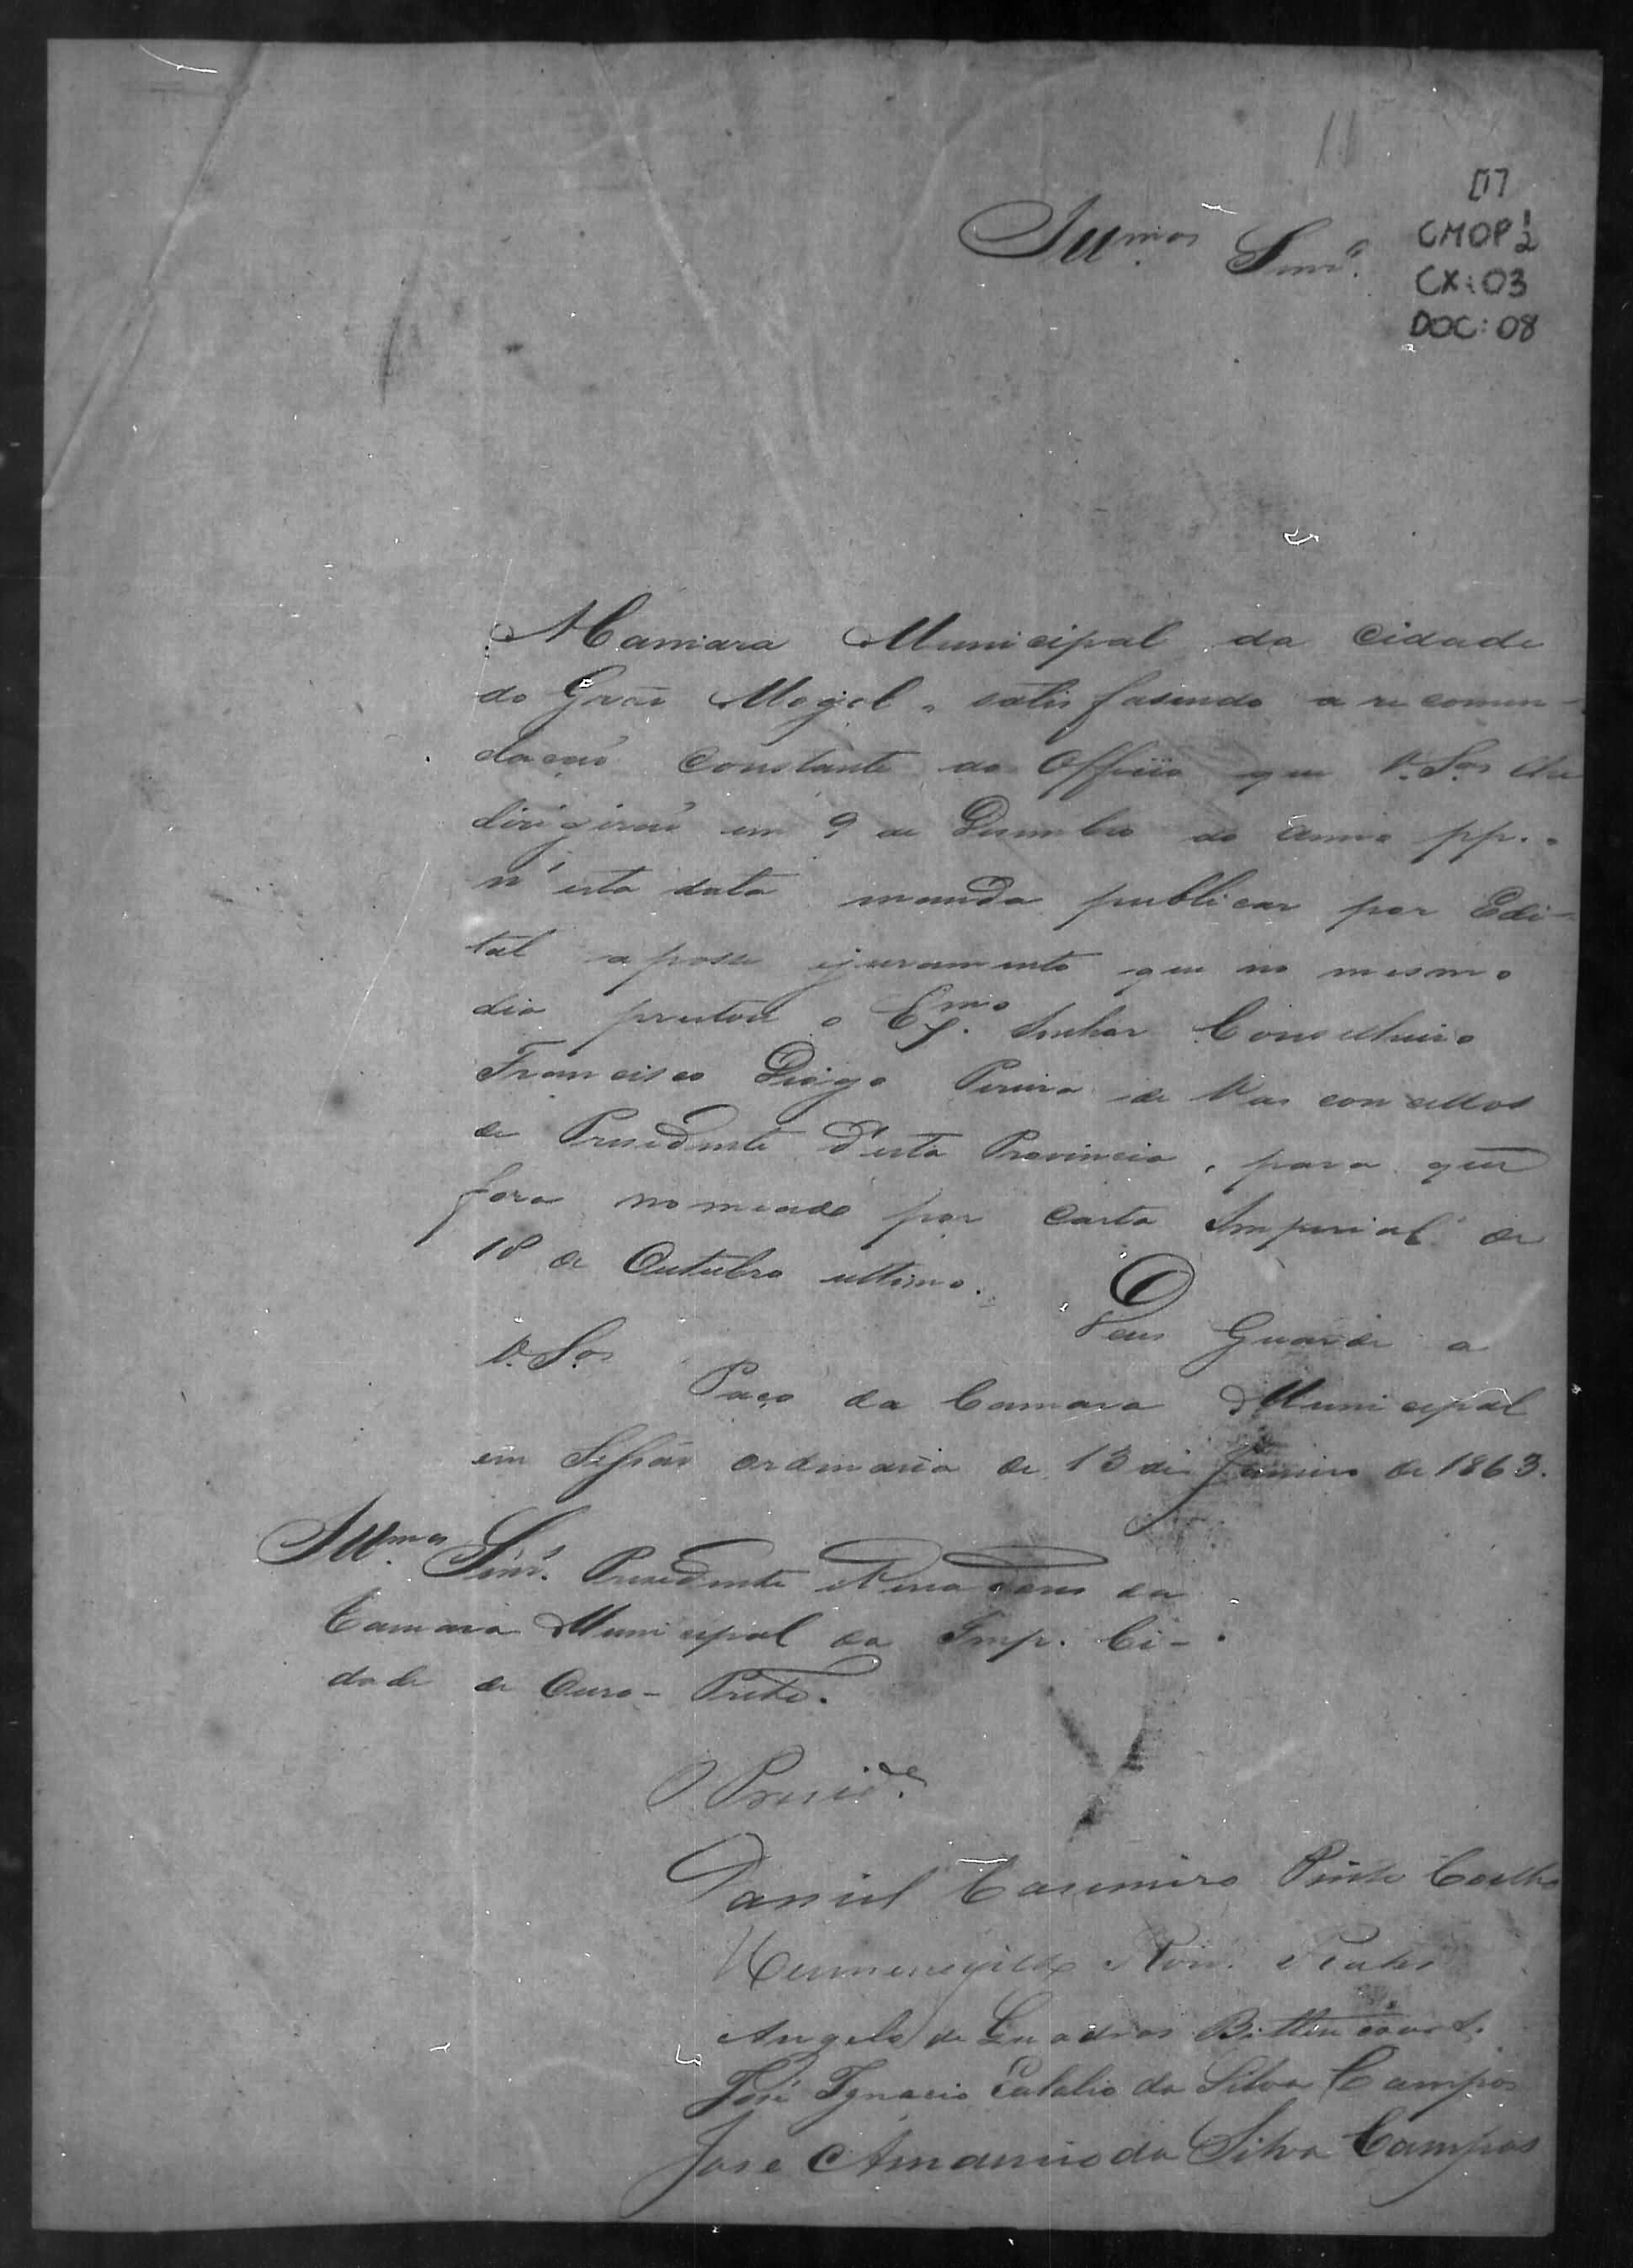 [17
CMOP ½
CX: 03
DOC: 08
Illmos Snrs.
A Camara Municipal da Cidade
do Grão Mogol, satisfasendo a recomen-
dação constante do Officio que V. Sas lhe
dirigirão em 9 de Desembro do anno pp.,
n'esta data manda publicar por Edi-
tal a posse e juramento que no mesmo
dia prestou o Exmo. Senhor Conselheiro
Francisco Diogo Pereira de Vasconcellos
de Presidente d'esta Provincia, para que
fora nomeado por Carta Imperial de
18 de Outubro ultimo.
Deus Guarde a
V. Sas
Paço da Camara Municipal
em Sessão ordinaria de 13 de Janeiro de 1863.
Illmos Snrs. Presidente e Vereadores da
Camara Municipal da Imp. Ci-
dade de Ouro-Preto.
O Preside.
Daniel Casemiro Pinto Coelho
Hermenegildo Prates
Angelo de Quadros Bittencourt.
José Ignacio Eulalio da Silva Campos
José Amancio da Silva Campos